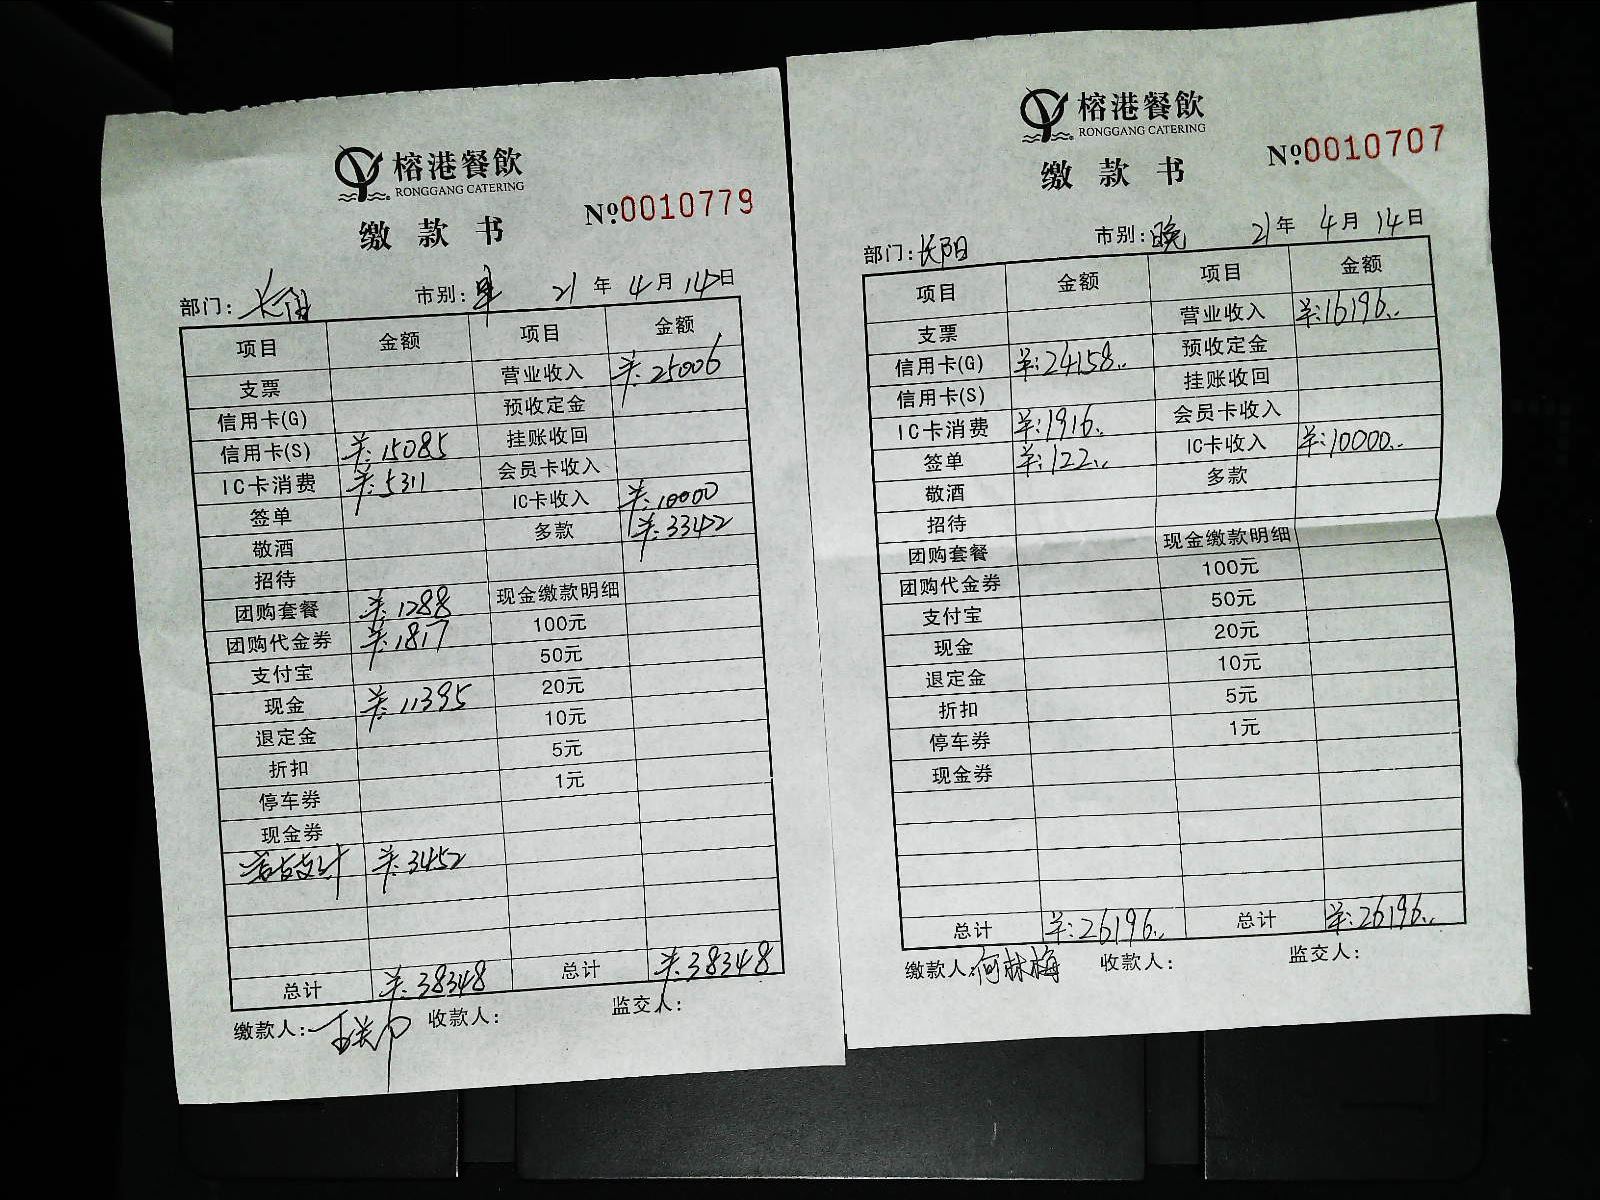 榕港餐飲
RONGGANG CATERING
缴款书
№0010779
部门: 长阳 市别: 早 21年4月14日
项目 金额 项目 金额
支票 营业收入 ¥:25006
信用卡(G) 预收定金
信用卡(S) ¥:15085 挂账收回
IC卡消费 ¥:5311 会员卡收入
签单 IC卡收入 ¥:10000
敬酒 多款 ¥:3342
招待
团购套餐 ¥:1288 现金缴款明细
团购代金券 ¥:1817 100元
支付宝 50元
现金 ¥:11395 20元
退定金 10元
折扣 5元
停车券 1元
现金券
¥:3452
总计 ¥:38348 总计 ¥:38348
缴款人: 收款人: 监交人:
榕港餐飲
RONGGANG CATERING
缴款书
№0010707
部门: 长阳 市别: 晚 21年4月14日
项目 金额 项目 金额
支票 营业收入 ¥:16196..
信用卡(G) ¥:24158.. 预收定金
信用卡(S) 挂账收回
IC卡消费 ¥:1916.. 会员卡收入
签单 ¥:122.. IC卡收入 ¥:10000..
敬酒 多款
招待
团购套餐 现金缴款明细
团购代金券 100元
支付宝 50元
现金 20元
退定金 10元
折扣 5元
停车券 1元
现金券
总计 ¥:26196.. 总计 ¥:26196..
缴款人: 何林梅 收款人: 监交人: